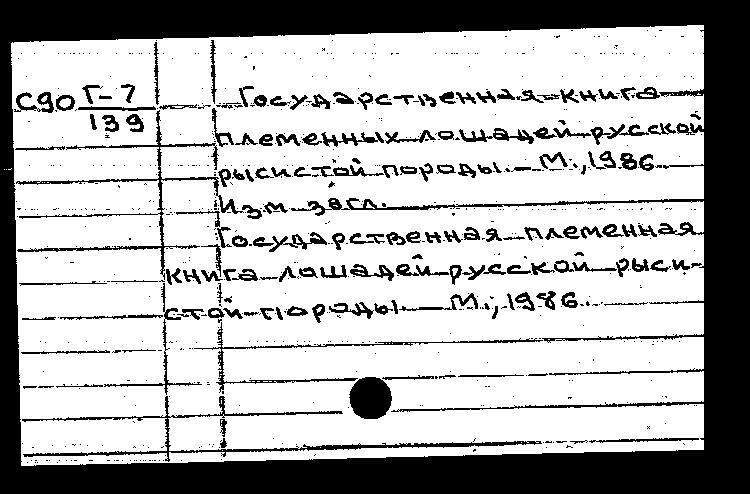 С90 Г-7
139
Государственная книга
племенных лошадей русской
рысистой породы. — М., 1986.
Изм. загл.
Государственная племенная
книга лошадей русской рыси-
стой породы. — М., 1986.